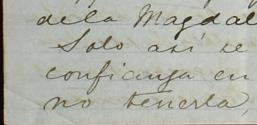 de la Magdal
Solo así se
confianza en
no tenerla,